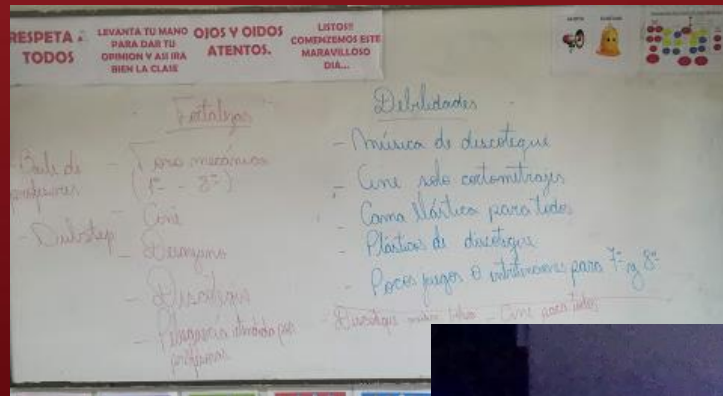 RESPETA A
TODOS
LEVANTA TU MANO
PARA DAR TU
OPINION Y ASI IRA
BIEN LA CLASE
OJOS Y OIDOS
ATENTOS.
LISTOS!!
COMENZEMOS ESTE
MARAVILLOSO
DIA...
Fortalezas
- Baile de
profesores
- Dubstep
- Toro mecánico
(1º - 8º)
- Cine
- Desayuno
- Discoteque
- atendida por
profesores
Debilidades
- Música de discoteque
- Cine solo cortometrajes
- Cama elástica para todos
- Plásticos de discoteque
- Pocos juegos o para 7º y 8º
- Discoteque - Cine para todos